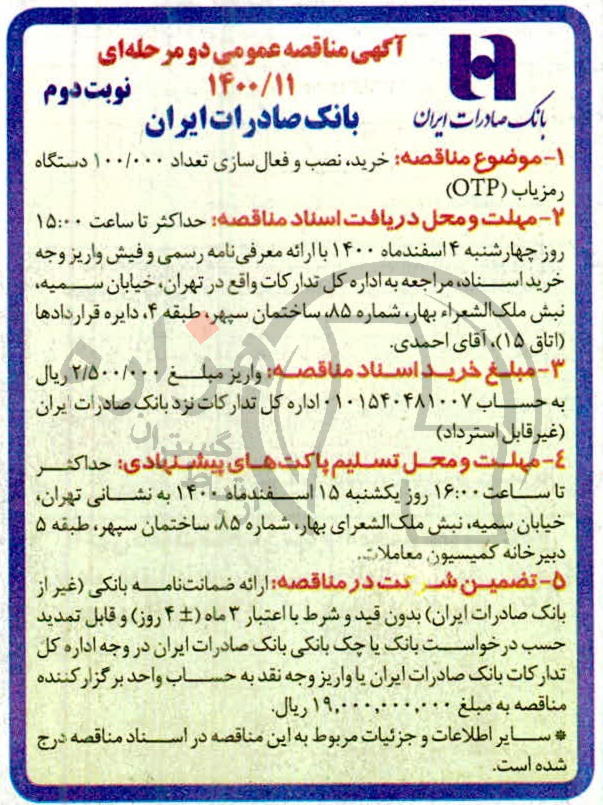 آگهی مناقصه عمومی دو مرحله‌ای
۱۴۰۰/۱۱
نوبت دوم
بانک صادرات ایران
بانک صادرات ایران
۱- موضوع مناقصه: خرید، نصب و فعال‌سازی تعداد ۱۰۰/۰۰۰ دستگاه
رمزیاب (OTP)
۲- مهلت و محل دریافت اسناد مناقصه: حداکثر تا ساعت ۱۵:۰۰
روز چهارشنبه ۴ اسفندماه ۱۴۰۰ با ارائه معرفی‌نامه رسمی و فیش واریز وجه
خرید اسناد، مراجعه به اداره کل تدارکات واقع در تهران، خیابان سمیه،
نبش ملک‌الشعراء بهار، شماره ۸۵، ساختمان سپهر، طبقه ۴، دایره قراردادها
(اتاق ۱۵)، آقای احمدی.
۳- مبلغ خرید اسناد مناقصه: واریز مبلغ ۲/۵۰۰/۰۰۰ ریال
به حساب ۰۱۰۱۵۴۰۴۸۱۰۰۷ اداره کل تدارکات نزد بانک صادرات ایران
(غیرقابل استرداد)
۴- مهلت و محل تسلیم پاکت‌های پیشنهادی: حداکثر
تا ساعت ۱۶:۰۰ روز یکشنبه ۱۵ اسفندماه ۱۴۰۰ به نشانی تهران،
خیابان سمیه، نبش ملک‌الشعرای بهار، شماره ۸۵، ساختمان سپهر، طبقه ۵
دبیرخانه کمیسیون معاملات.
۵- تضمین شرکت در مناقصه: ارائه ضمانت‌نامه بانکی (غیر از
بانک صادرات ایران) بدون قید و شرط با اعتبار ۳ ماه (± ۴ روز) و قابل تمدید
حسب درخواست بانک یا چک بانکی بانک صادرات ایران در وجه اداره کل
تدارکات بانک صادرات ایران یا واریز وجه نقد به حساب واحد برگزارکننده
مناقصه به مبلغ ۱۹,۰۰۰,۰۰۰,۰۰۰ ریال.
* سایر اطلاعات و جزئیات مربوط به این مناقصه در اسناد مناقصه درج
شده است.